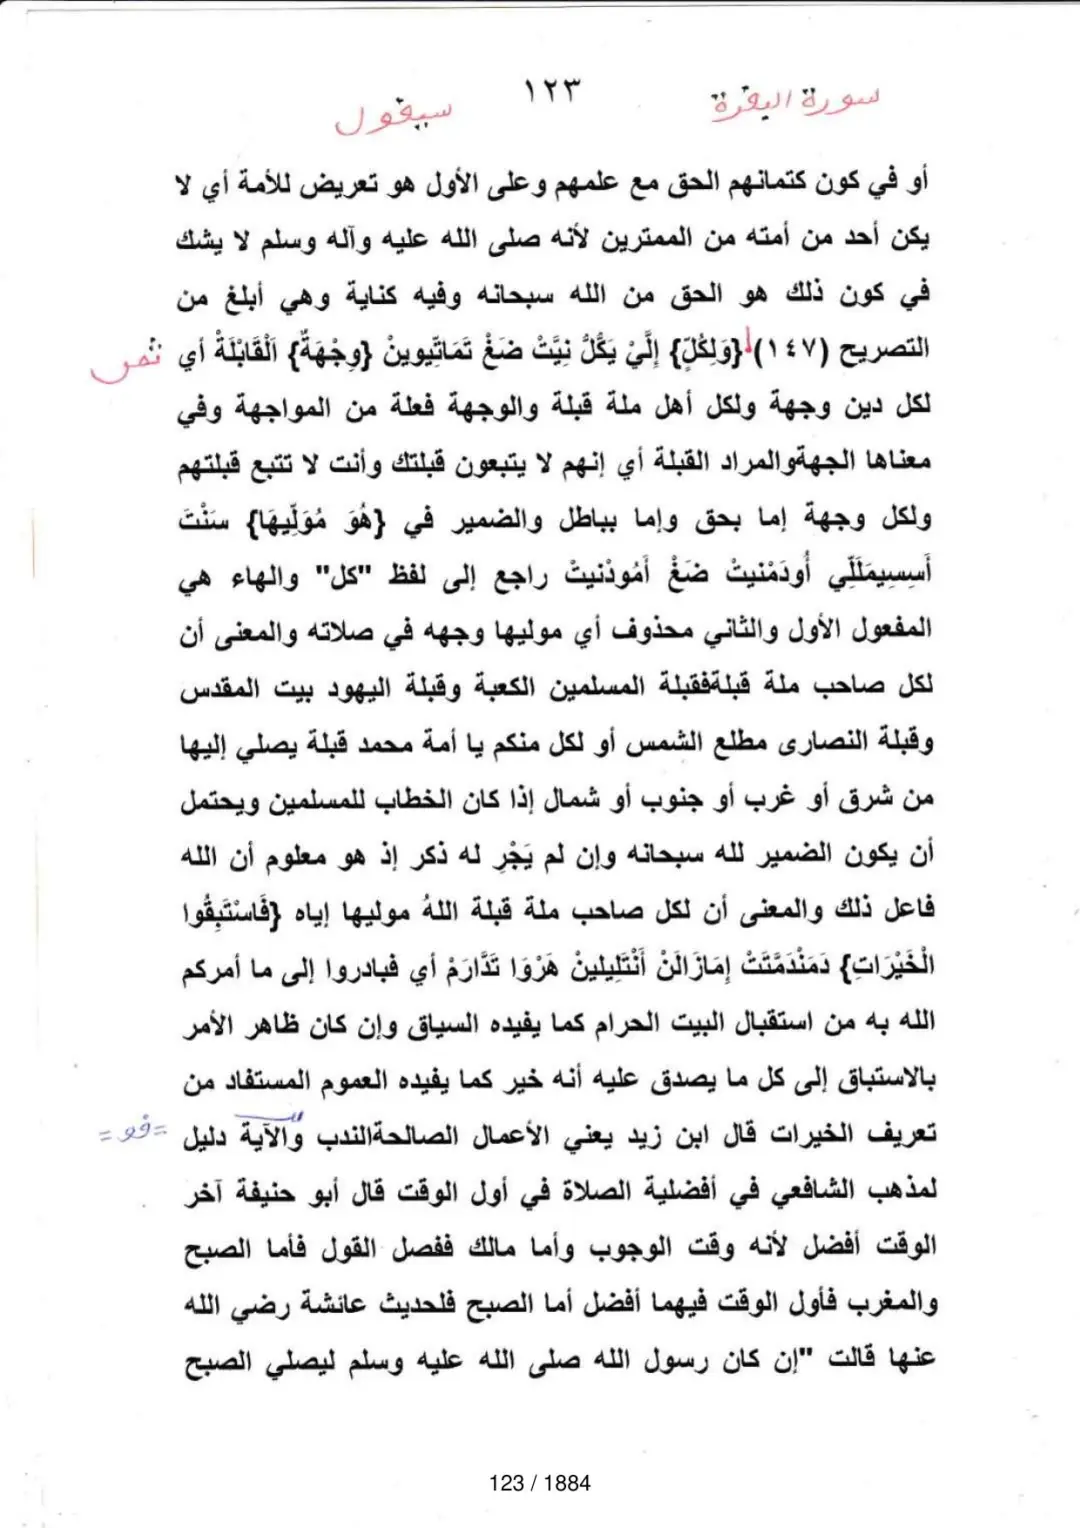 سورة البقرة
١٢٣
سيقول
أو في كون كتمانهم الحق مع علمهم وعلى الأول هو تعريض للأمة أي لا
يكن أحد من أمته من الممترين لأنه صلى الله عليه وآله وسلم لا يشك
في كون ذلك هو الحق من الله سبحانه وفيه كناية وهي أبلغ من
التصريح (١٤٧) {وَلِكُلٍّ} إِلَّيْ يَكُّلُّ نِيَّتْ ضَغْ تَمَاتِّيوِينْ {وِجْهَةٌ} الْقَابْلَةْ أي
لكل دين وجهة ولكل أهل ملة قبلة والوجهة فعلة من المواجهة وفي
معناها الجهةوالمراد القبلة أي إنهم لا يتبعون قبلتك وأنت لا تتبع قبلتهم
ولكل وجهة إما بحق وإما بباطل والضمير في {هُوَ مُوَلِّيهَا} سَنْتَ
أَسِسِيمَلَلِّي أُودَمْنيتْ ضَغْ أَمُودْنيتْ راجع إلى لفظ "كل" والهاء هي
المفعول الأول والثاني محذوف أي موليها وجهه في صلاته والمعنى أن
لكل صاحب ملة قبلةفقبلة المسلمين الكعبة وقبلة اليهود بيت المقدس
وقبلة النصارى مطلع الشمس أو لكل منكم يا أمة محمد قبلة يصلي إليها
من شرق أو غرب أو جنوب أو شمال إذا كان الخطاب للمسلمين ويحتمل
أن يكون الضمير لله سبحانه وإن لم يَجْرِ له ذكر إذ هو معلوم أن الله
فاعل ذلك والمعنى أن لكل صاحب ملة قبلة اللهُ موليها إياه {فَاسْتَبِقُوا
الْخَيْرَاتِ} دَمَنْدَمَّتَتْ إِمَازَالَنْ أَنْتَلِيلِينْ هَرْوَا تَدَّارَمْ أي فبادروا إلى ما أمركم
الله به من استقبال البيت الحرام كما يفيده السياق وإن كان ظاهر الأمر
بالاستباق إلى كل ما يصدق عليه أنه خير كما يفيده العموم المستفاد من
تعريف الخيرات قال ابن زيد يعني الأعمال الصالحةالندب والآية دليل
=فو=
لمذهب الشافعي في أفضلية الصلاة في أول الوقت قال أبو حنيفة آخر
الوقت أفضل لأنه وقت الوجوب وأما مالك ففصل القول فأما الصبح
والمغرب فأول الوقت فيهما أفضل أما الصبح فلحديث عائشة رضي الله
عنها قالت "إن كان رسول الله صلى الله عليه وسلم ليصلي الصبح
123 / 1884